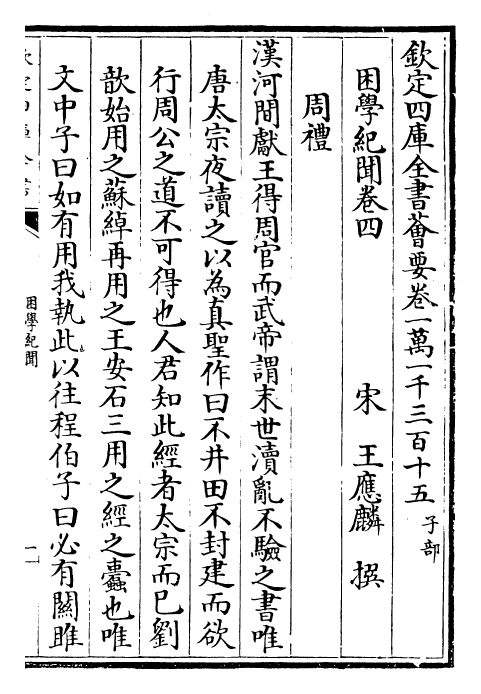 欽定四庫全書薈要卷一萬一千三百十五 子部
困學紀聞卷四 宋 王應麟 撰
周禮
漢河間獻王得周官而武帝謂末世瀆亂不驗之書唯
唐太宗夜讀之以為真聖作曰不井田不封建而欲
行周公之道不可得也人君知此經者太宗而已劉
歆始用之蘇綽再用之王安石三用之經之蠹也唯
文中子曰如有用我執此以往程伯子曰必有關雎
困學紀聞
一